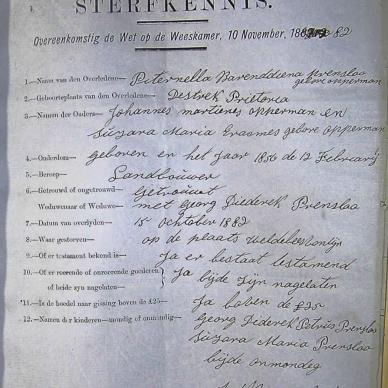 STERFKENNIS.
Overeenkomstig de Wet op de Weeskamer, 10 November, 18 82
1.—Naam van den Overledene— Pieternella Barenddiena Prensloo
gebore opperman
2.—Geboorteplaats van den Overledene— Destrek Prietoria
3.—Namen der Ouders— Johannes martienes opperman en
Suzara Maria Erasmes gebore opperman
4.—Ouderdom— geboren en het jaar 1856 de 12 Februarij
5.—Beroep— Landbouwer
6.—Getrouwd of ongetrouwd— Getrouwt
Weduwnaar of Weduwe— met Georg Diederek Prensloo
7.—Datum van overlyden— 15 ochtober 1882
8.—Waar gestorven— op de plaats
9.—Of er testament bekend is— Ja er bestaat testamend
10.—Of er roerende of onroerende goederen
of beide zyn nagelaten— Ja bijde zijn nagelaten
11.—Is de boedel naar gissing boven de £25— Ja boven de £25
12.—Namen der kinderen—mondig of onmondig— Georg Diederek Petrus Prensloo
Suzara Maria Prensloo
bijde onmondeg